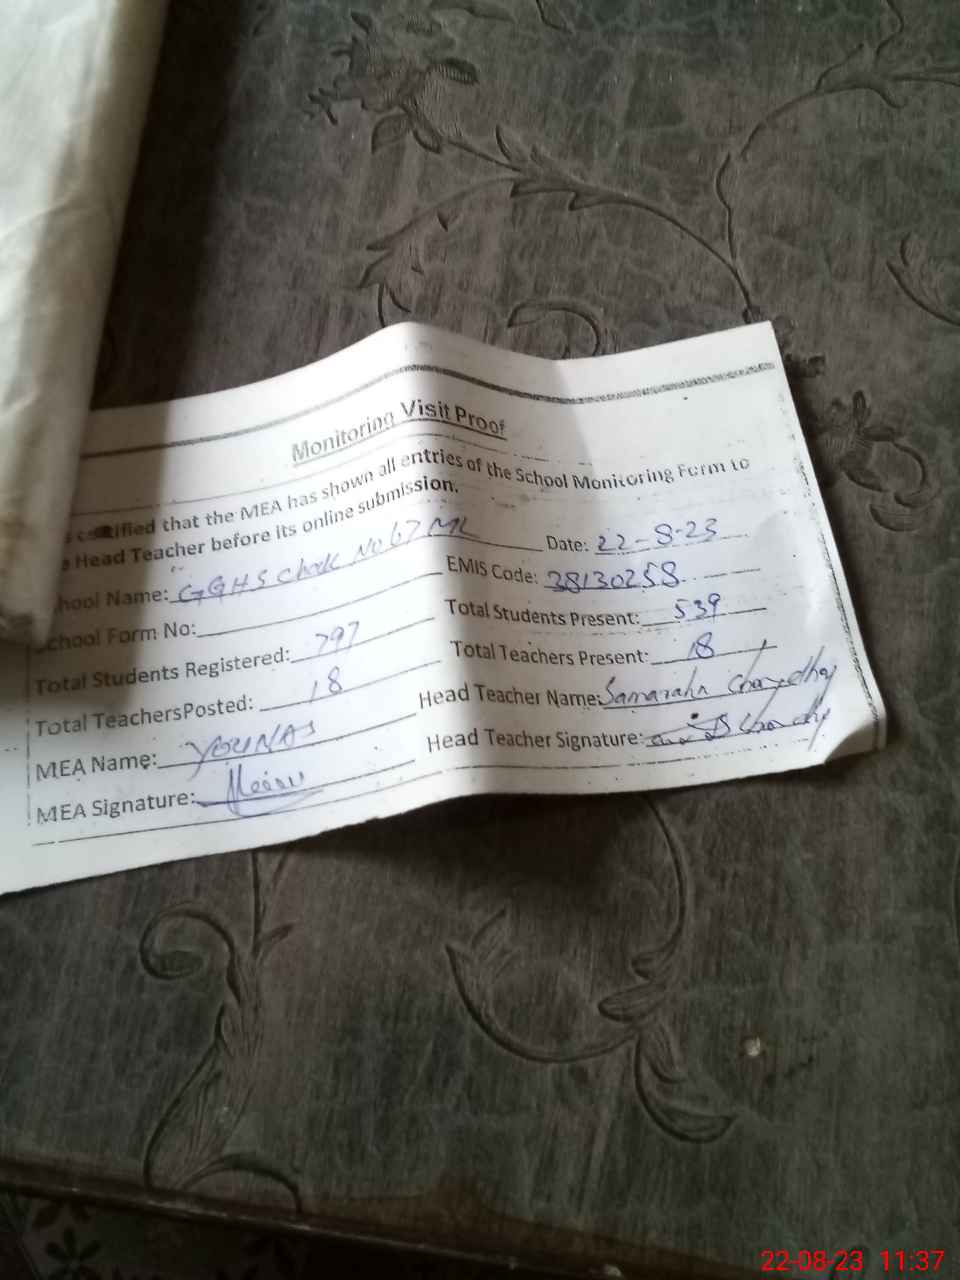 Monitoring Visit Proof
certified that the MEA has shown all entries of the School Monitoring Form to
Head Teacher before its online submission.
School Name: GGHS Chak No 67 ML Date: 22-8-23
School Form No: EMIS Code: 38130258
Total Students Registered: 797 Total Students Present: 539
Total TeachersPosted: 18 Total Teachers Present: 18
MEA Name: YOUNAS Head Teacher Name: Chaudhry
MEA Signature: Head Teacher Signature:
22-08-23 11:37